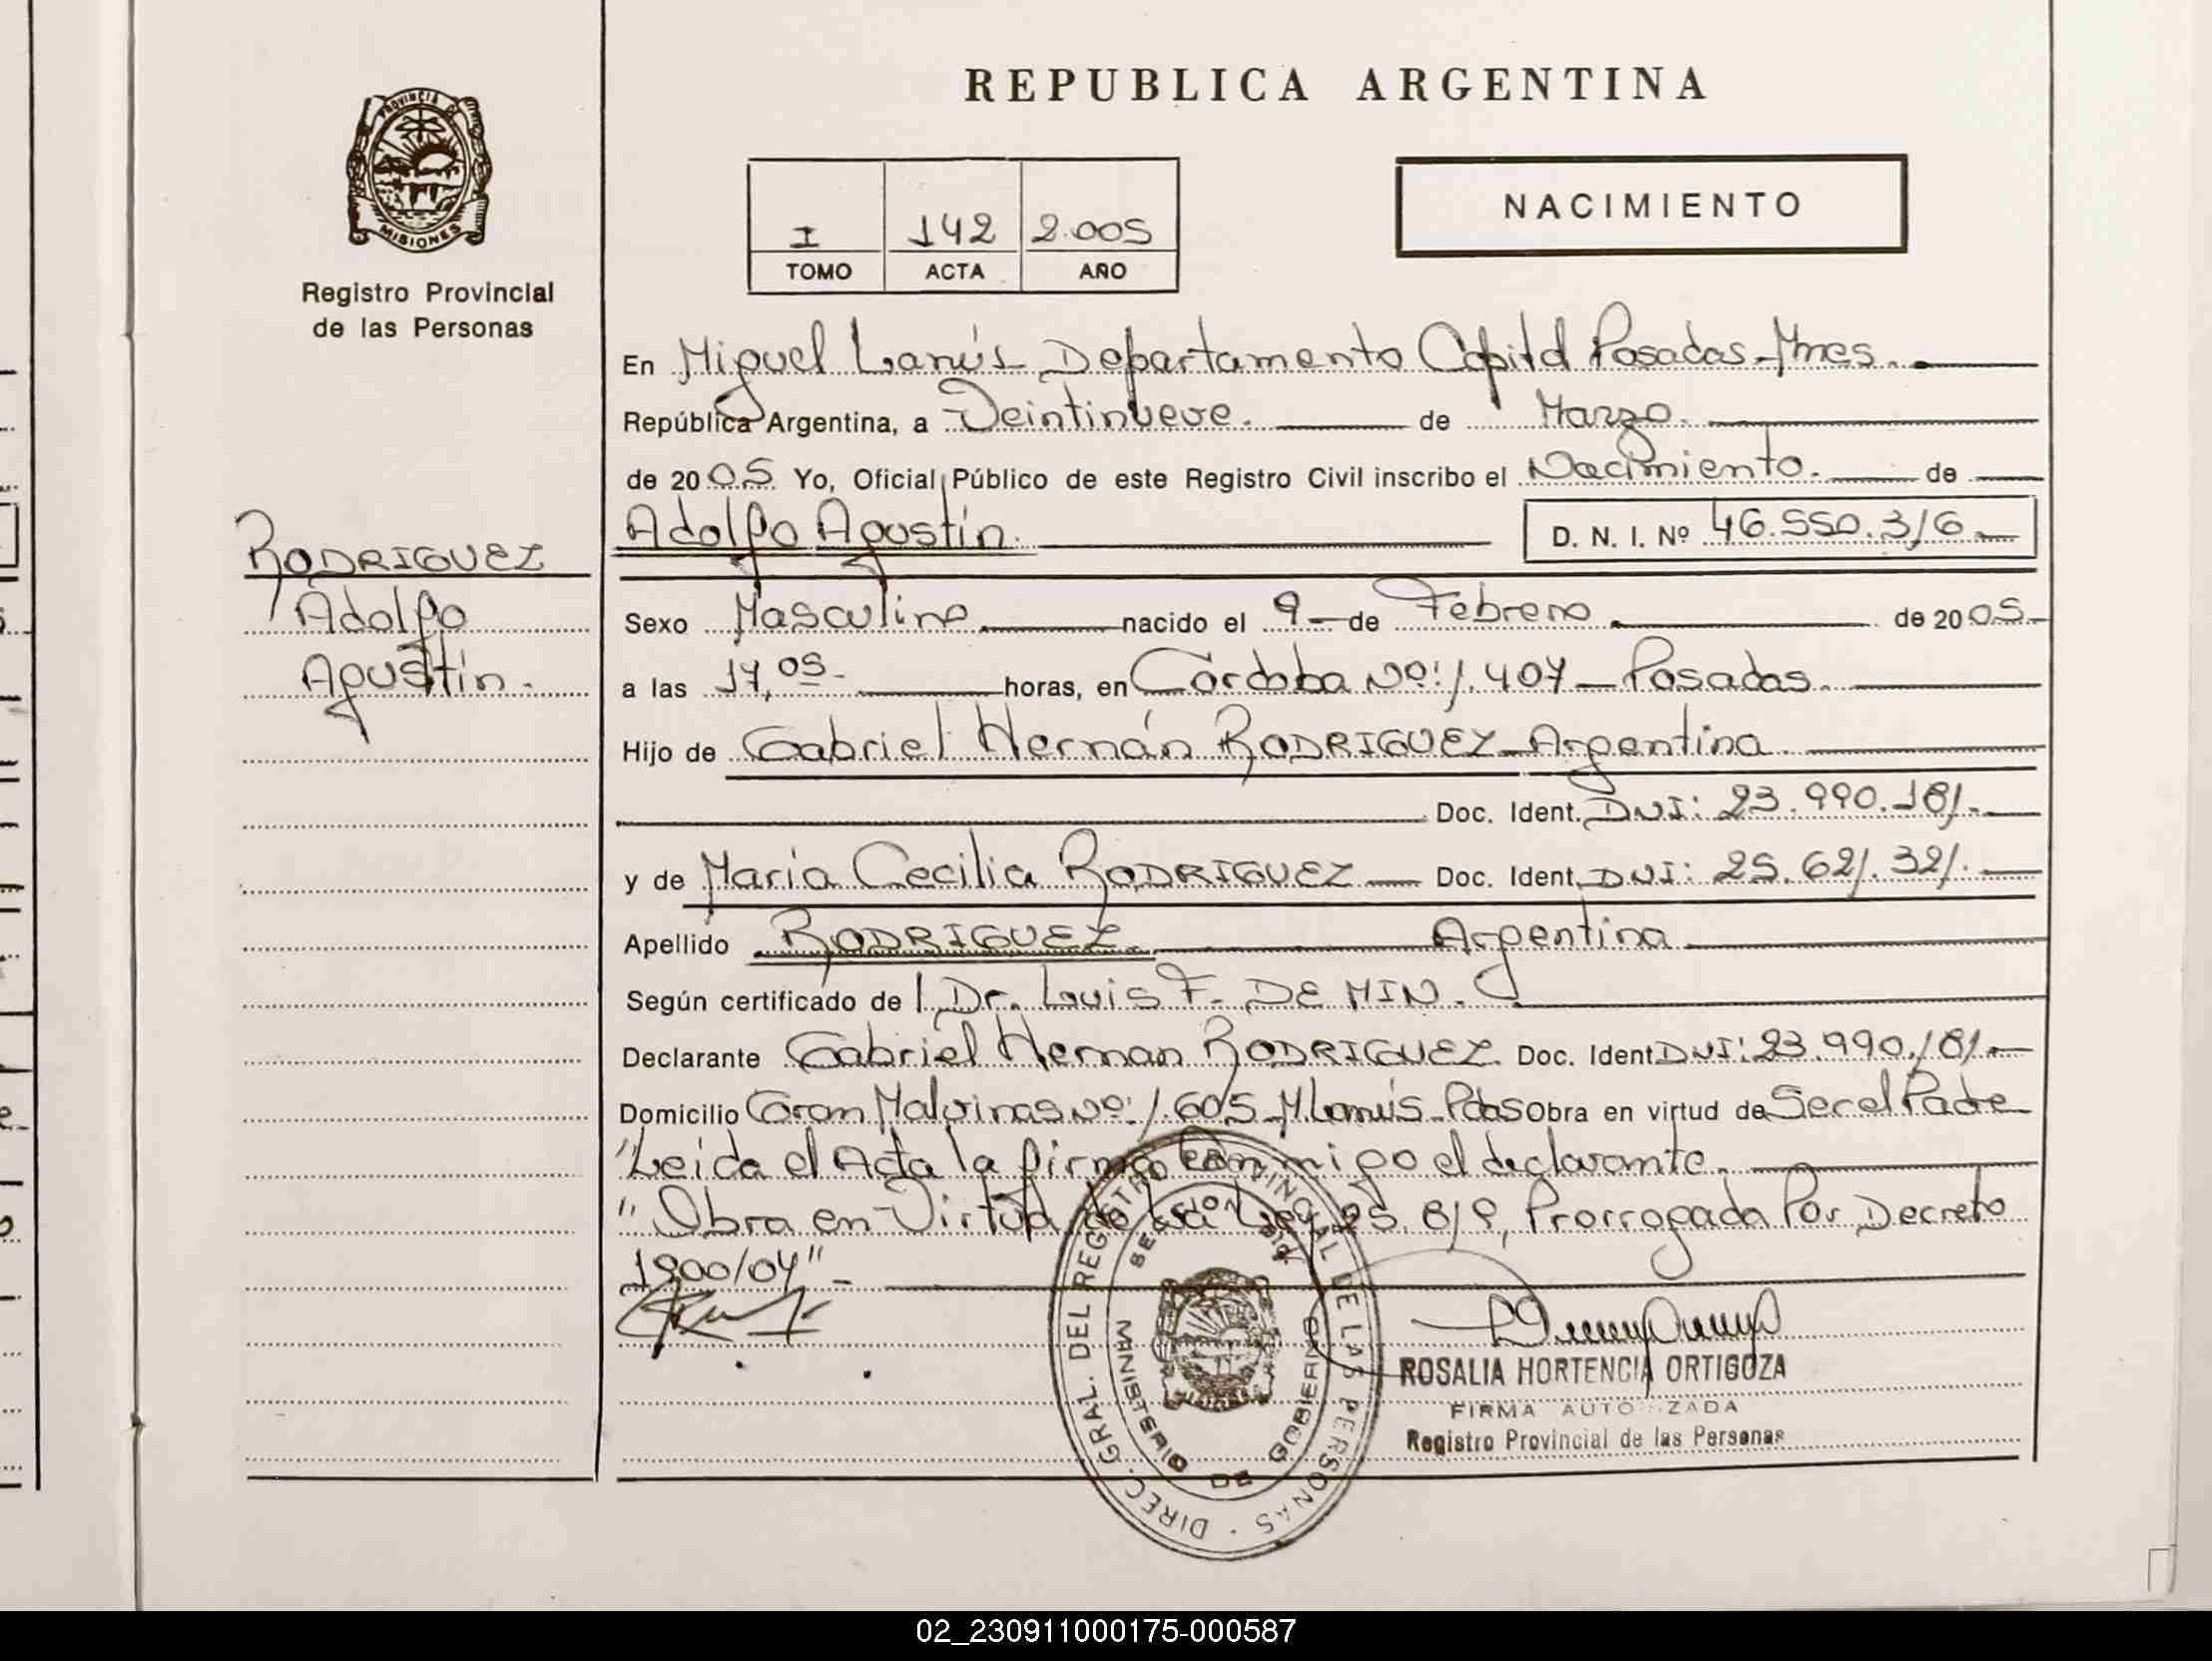 REPUBLICA ARGENTINA
PROVINCIA DE
MISIONES
Registro Provincial
de las Personas
I 142 2.005
TOMO ACTA AÑO
NACIMIENTO
En Miguel Lanús Departamento Capital Posadas-Mnes.
República Argentina, a Veintinueve. de Marzo.
de 2005 Yo, Oficial Público de este Registro Civil inscribo el Nacimiento. de
Adolfo Agustín. D. N. I. Nº 46.550.316
RODRIGUEZ
Adolfo
Agustín.
Sexo Masculino nacido el 9 de Febrero de 2005
a las 17,05 horas, en Córdoba Nº: 1.407 - Posadas.
Hijo de Gabriel Hernán RODRIGUEZ - Argentina
Doc. Ident. DNI: 23.990.181.
y de María Cecilia RODRIGUEZ Doc. Ident. DNI: 25.621.321.
Apellido RODRIGUEZ Argentina
Según certificado de l Dr. Luis F. DE MIN.
Declarante Gabriel Hernan RODRIGUEZ Doc. Ident DNI: 23.990.181
Domicilio Gran Malvinas Nº: 1.605 - M. Lanús - Pdas Obra en virtud de Ser el Padre
"Leida el Acta la firma conmigo el declarante.
"Obra en Virtud de la Ley 25.819, Prorrogada Por Decreto
1900/04"
DIREC. GRAL. DEL REGISTRO PROVINCIAL DE LAS PERSONAS
MINISTERIO DE GOBIERNO
ROSALIA HORTENCIA ORTIGOZA
FIRMA AUTORIZADA
Registro Provincial de las Personas
02_230911000175-000587